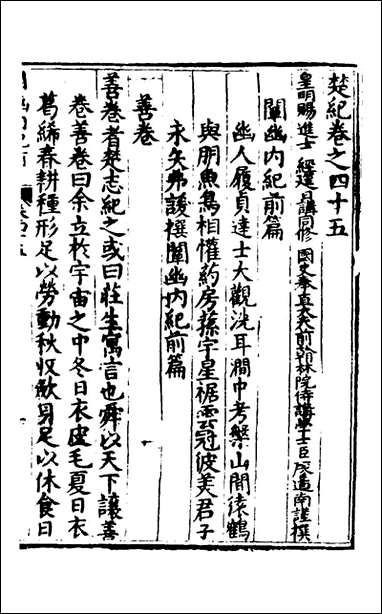 楚紀卷之四十五
皇明賜進士 經筵講同修 國史奉直大夫前翰林院侍講學士臣廖道南謹撰
闡幽内紀前篇
幽人履貞達士大觀洗耳澗中考槃山間猿鶴
與朋魚鳥相懽葯房蓀宇星裾雲冠彼美君子
永矢弗諼撰闡幽内紀前篇
善卷
善卷者楚志紀之或曰莊生寓言也舜以天下讓善
卷善卷曰余立於宇宙之中冬日衣皮毛夏日衣
葛絺春耕種形足以勞動秋収斂身足以休食日